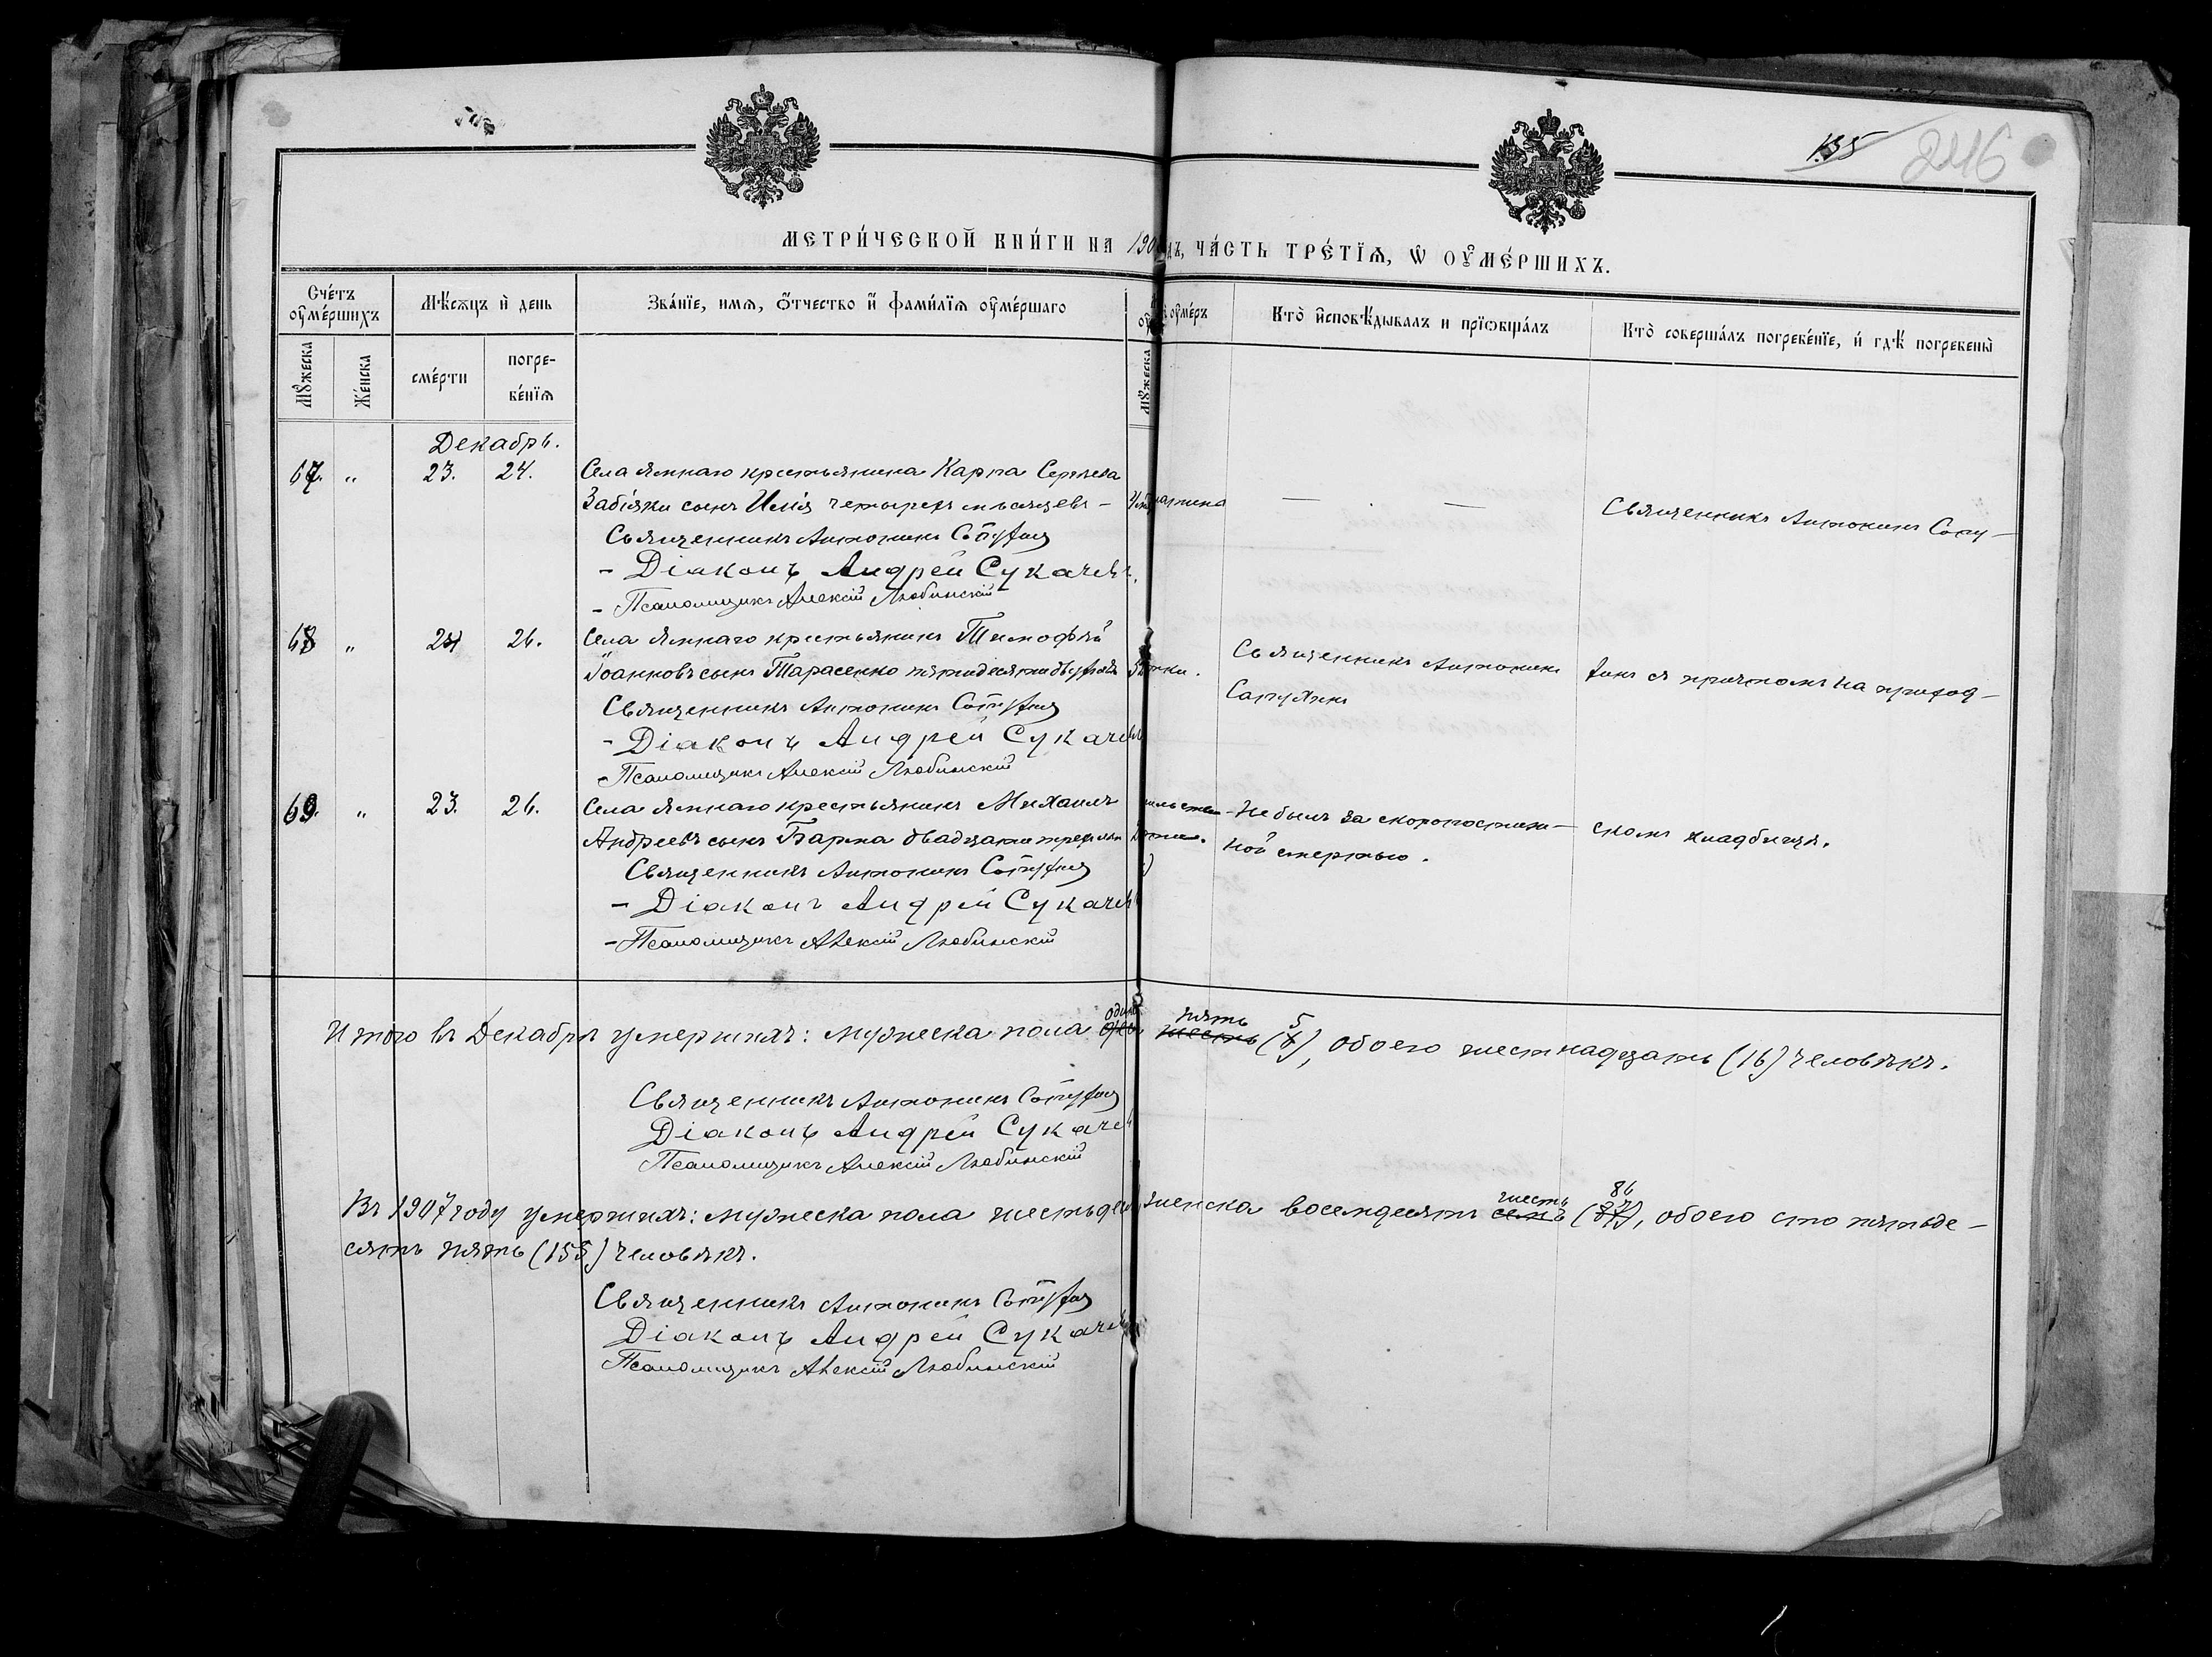 135
246
МЕТРИ́ЧЕСКОЙ КНИ́ГИ НА 190 ДЪ, ЧА́СТЬ ТРЕ́ТЇѦ, Ѡ ОУМЕ́РШИХЪ.
Сче́тъ оуме́ршихъ
Мѣ́сѧцъ и҆ день
Зва́нїе, имѧ, ѻ҆́тчество и҆ фами́лїѧ оуме́ршаго
оуме́ръ
Кто̀ и҆сповѣ́дывалъ и прїѡбща́лъ
Кто̀ соверша́лъ погребе́нїе, и҆ гдѣ̀ погребены̀
Мꙋ́жеска
Же́нска
сме́рти
погребе́нїѧ
Мꙋ́жеска
Декабрь.
67. " 23. 24. Села Ямнаго крестьянина Карпа Сергѣева
Забіяки сынъ Илія четырехъ мѣсяцевъ –
Священникъ Антонинъ
– Діаконъ Андрей Сукачевъ
– Псаломщикъ Алексій Любинскій
— . —
Священникъ Антонинъ Сапу–
68 " 24 26. Села Ямнаго крестьянинъ Тимофей
Іоанновъ сынъ Тарасенко пятидесяти двухъ лѣтъ
Священникъ Антонинъ
– Діаконъ Андрей Сукачевъ
– Псаломщикъ Алексій Любинскій
Священникъ Антонинъ
Сапухинъ
хинъ съ причтомъ на приход–
69. " 23. 26. Села Ямнаго крестьянинъ Михаилъ
Андреевъ сынъ Барма двадцати трехъ лѣтъ
Священникъ Антонинъ
– Діаконъ Андрей Сукачевъ
– Псаломщикъ Алексій Любинскій
Не былъ за скоропостиж–
ной смертью.
скомъ кладбищѣ.
Итого въ Декабрѣ умершихъ: мужеска пола один пять шесть (5), обоего шестнадцать (16) человѣкъ.
Священникъ Антонинъ
Діаконъ Андрей Сукачев
Псаломщикъ Алексій Любинскій
Въ 1907 году умершихъ: мужеска пола шестьдес женска восемдесятъ шесть семь (86), обоего сто пятьде–
сятъ пять (155) человѣкъ.
Священникъ Антонинъ
Діаконъ Андрей Сукачев
Псаломщикъ Алексій Любинскій